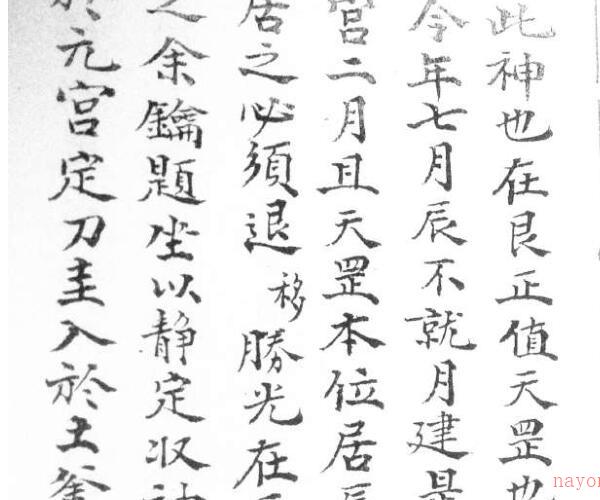 此神也在艮正值天罡也
今年七月辰不就月建是
宮二月且天罡本位居辰
居之必須退移勝光在
之余鑰題坐以靜定収神
於元宮定刀圭入於土釜
nayon